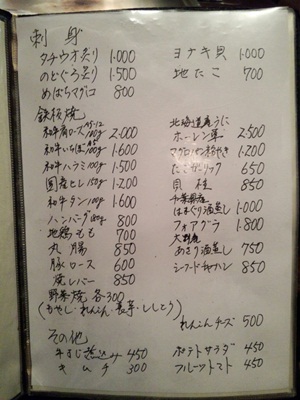 刺身
タチウオ造り 1.000
のどぐろ造り 1.500
めばちマグロ 800
ヨナキ貝 1.000
地たこ 700
鉄板焼
和牛肩ロース A5-12 100g 2.000
和牛いちぼ A5 100g 1.600
和牛ハラミ 100g 1.500
国産ヒレ 150g 1.200
和牛タン 100g 1.600
ハンバーグ 800
地鶏もも 700
丸腸 850
豚ロース 600
焼レバー 850
野菜焼 各300
(もやし・れんこん・長芋・ししとう)
北海道産うに
ホーレン草 2.500
マグロホホ肉ステーキ 1.200
たこガーリック 650
貝柱 850
千葉県産
はまぐり酒蒸し 1.000
フォアグラ 1.800
大野産
あさり酒蒸し 750
シーフードチャーハン 850
れんこんチーズ 500
その他
牛すじ煮込み 450
キムチ 300
ポテトサラダ 450
フルーツトマト 450